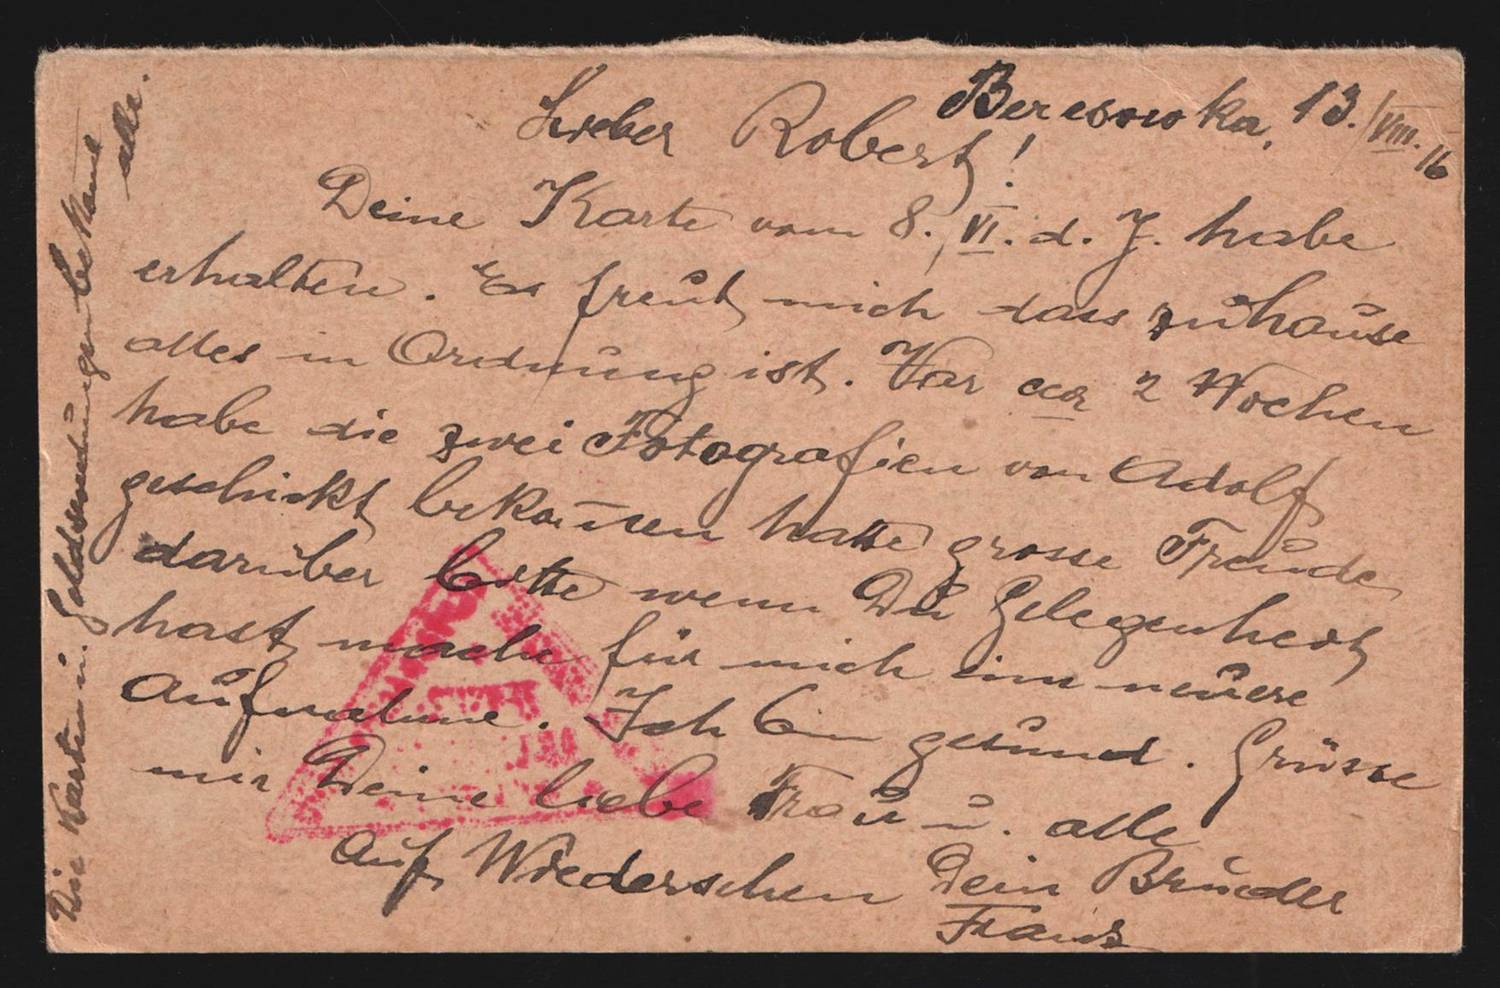 Beresowka, 13./VIII. 16
Lieber Robert!
Deine Karte vom 8., VI. d. J. habe
erhalten. Es freut mich dass zuhause
alles in Ordnung ist. Vor 2 Wochen
habe die zwei Fotografien von Adolf
geschickt bekommen hatte grosse Freude
darüber bitte wenn Du Gelegenheit
hast mache für mich eine neuere
Aufnahme. Ich bin gesund. Grüsse
mir Deine liebe Frau u. alle
Auf Wiedersehen Dein Bruder
Franz
Die Karten u. Geldsendungen bekam
alle.